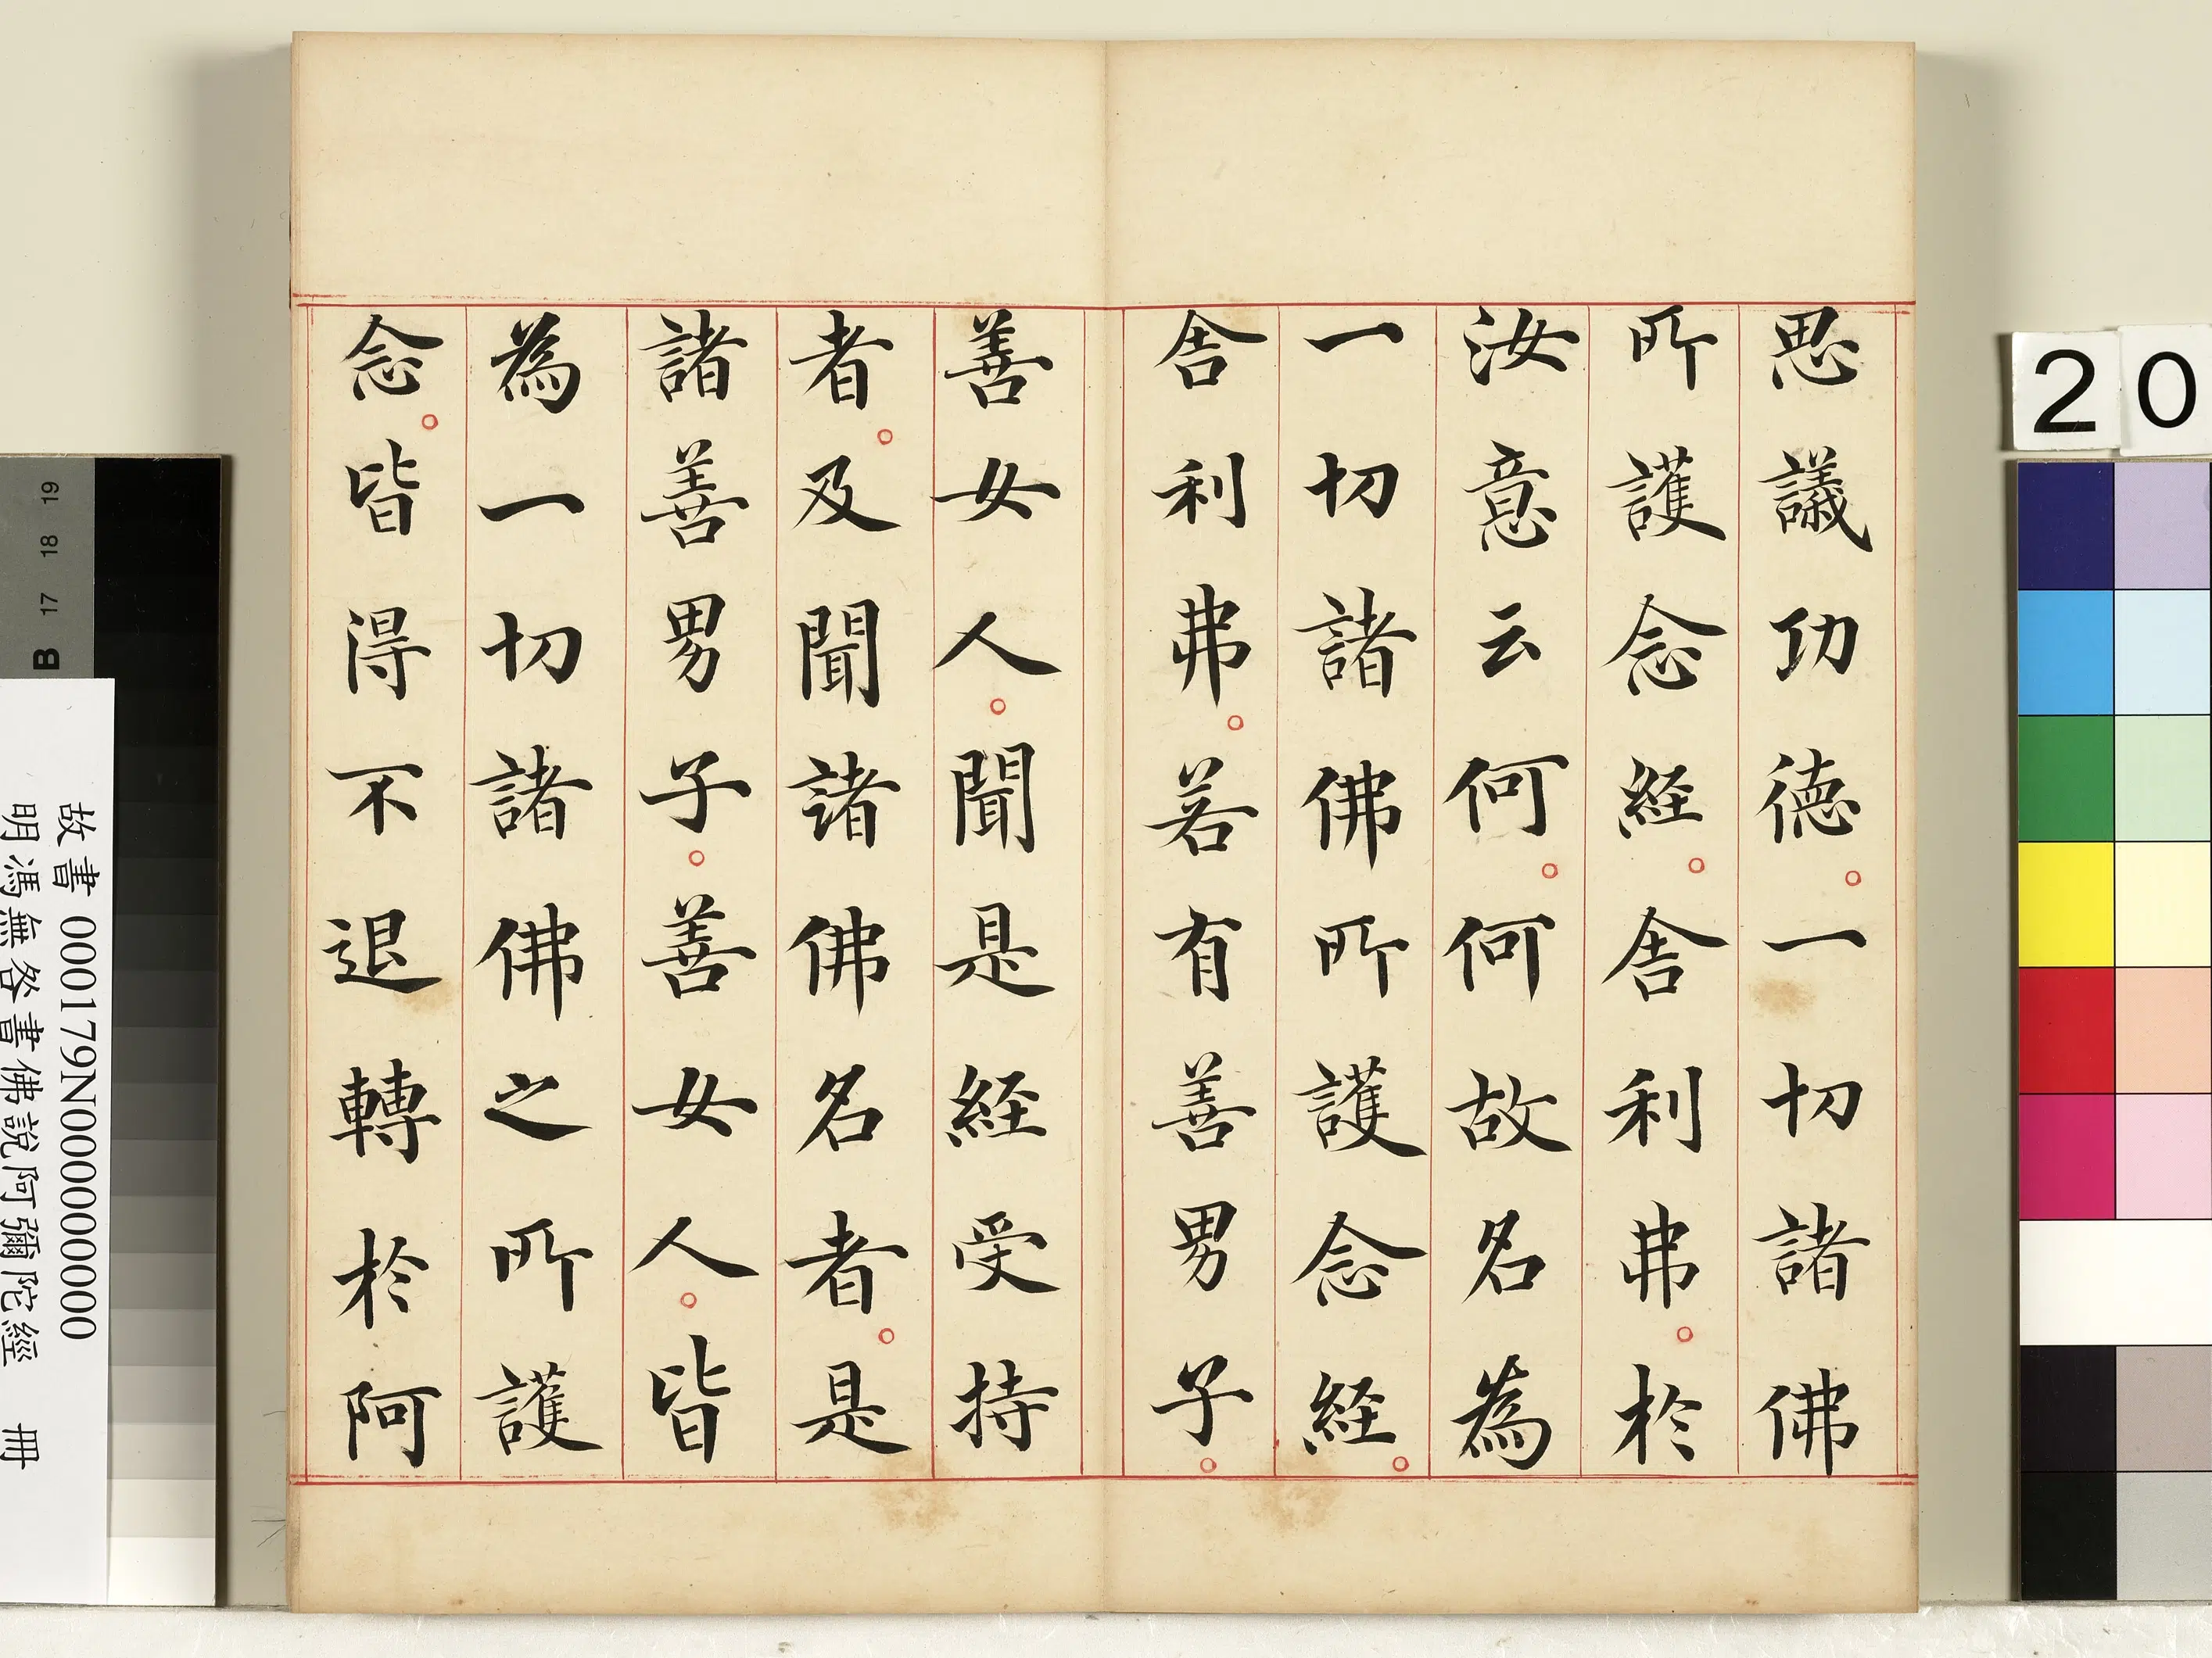 思議功德。一切諸佛
所護念経。舍利弗。於
汝意云何。何故名為
一切諸佛所護念経。
舍利弗。若有善男子。
善女人。聞是経受持
者。及聞諸佛名者。是
諸善男子。善女人。皆
為一切諸佛之所護
念。皆得不退轉於阿
20
B 17 18 19
故書 000179N000000000
明馮無咎書佛說阿彌陀經 冊